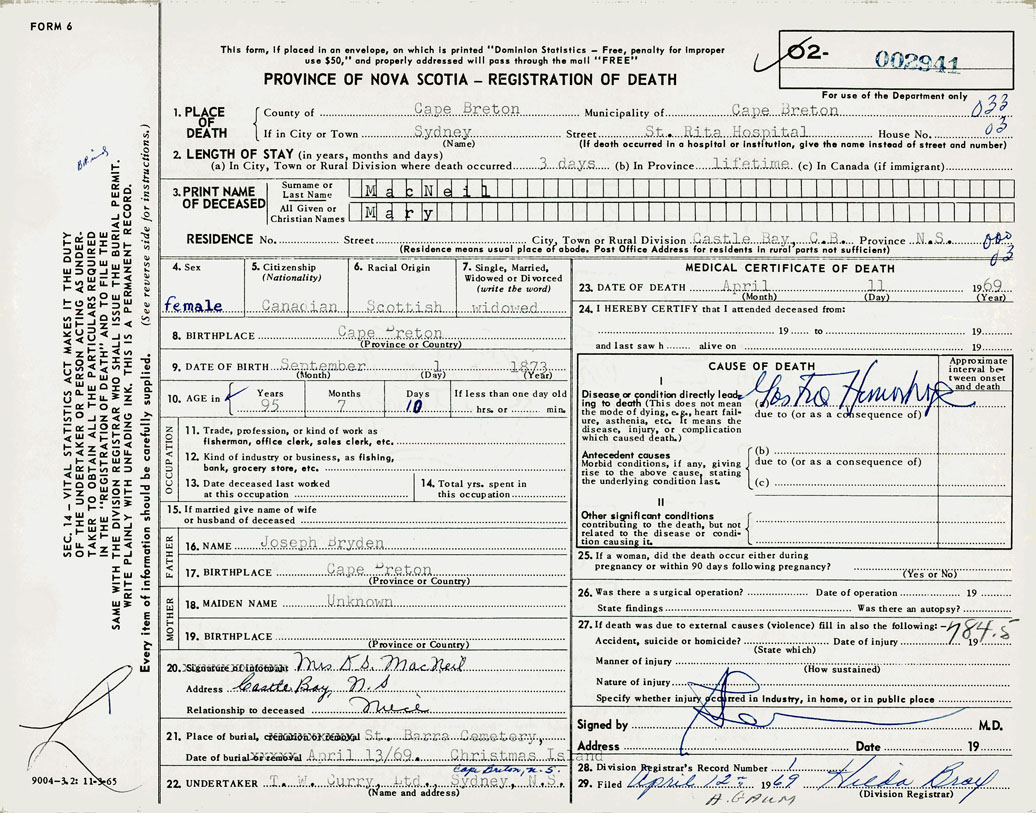 FORM 6
This form, if placed in an envelope, on which is printed "Dominion Statistics – Free, penalty for improper
use $50," and properly addressed will pass through the mail "FREE"
PROVINCE OF NOVA SCOTIA – REGISTRATION OF DEATH
02- 002941
For use of the Department only
033
03
1. PLACE OF DEATH
County of Cape Breton Municipality of Cape Breton
If in City or Town Sydney Street St. Rita Hospital House No.
(Name) (If death occurred in a hospital or institution, give the name instead of street and number)
2. LENGTH OF STAY (in years, months and days)
(a) In City, Town or Rural Division where death occurred 3 days (b) In Province lifetime (c) In Canada (if immigrant)
3. PRINT NAME OF DECEASED
Surname or Last Name MacNeil
All Given or Christian Names Mary
RESIDENCE No. Street City, Town or Rural Division Castle Bay, C.B. Province N.S.
(Residence means usual place of abode. Post Office Address for residents in rural parts not sufficient)
000
03
4. Sex
female
5. Citizenship
(Nationality)
Canadian
6. Racial Origin
Scottish
7. Single, Married,
Widowed or Divorced
(write the word)
widowed
8. BIRTHPLACE Cape Breton
(Province or Country)
9. DATE OF BIRTH September 1 1873
(Month) (Day) (Year)
10. AGE in
Years Months Days If less than one day old
95 7 10 hrs. or min.
OCCUPATION
11. Trade, profession, or kind of work as
fisherman, office clerk, sales clerk, etc.
12. Kind of industry or business, as fishing,
bank, grocery store, etc.
13. Date deceased last worked
at this occupation
14. Total yrs. spent in
this occupation
15. If married give name of wife
or husband of deceased
FATHER
16. NAME Joseph Bryden
17. BIRTHPLACE Cape Breton
(Province or Country)
MOTHER
18. MAIDEN NAME Unknown
19. BIRTHPLACE
(Province or Country)
20. Signature of informant Mrs D.S. MacNeil
Address Castle Bay, N.S
Relationship to deceased Niece
21. Place of burial, cremation or removal St. Barra Cemetery,
Date of burial or removal April 13/69. Christmas Island
Cape Breton, N.S.
22. UNDERTAKER T. W. Curry, Ltd., Sydney, N.S.
(Name and address)
MEDICAL CERTIFICATE OF DEATH
23. DATE OF DEATH April 11 1969
(Month) (Day) (Year)
24. I HEREBY CERTIFY that I attended deceased from:
19 to 19
and last saw h alive on 19
CAUSE OF DEATH
Approximate
interval be-
tween onset
and death
I
Disease or condition directly lead-
ing to death (This does not mean
the mode of dying, e.g., heart fail-
ure, asthenia, etc. It means the
disease, injury, or complication
which caused death.)
(a)
due to (or as a consequence of)
Antecedent causes
Morbid conditions, if any, giving
rise to the above cause, stating
the underlying condition last.
(b)
due to (or as a consequence of)
(c)
II
Other significant conditions
contributing to the death, but not
related to the disease or condi-
tion causing it.
25. If a woman, did the death occur either during
pregnancy or within 90 days following pregnancy?
(Yes or No)
26. Was there a surgical operation? Date of operation 19
State findings Was there an autopsy?
27. If death was due to external causes (violence) fill in also the following: 784.5
Accident, suicide or homicide? Date of injury 19
(State which)
Manner of injury
(How sustained)
Nature of injury
Specify whether injury occurred in industry, in home, or in public place
Signed by M.D.
Address Date 19
28. Division Registrar's Record Number 1
29. Filed April 12 1969 Hilda Bray
(Division Registrar)
A. GAUM
SEC. 14 – VITAL STATISTICS ACT MAKES IT THE DUTY
OF THE UNDERTAKER OR PERSON ACTING AS UNDER-
TAKER TO OBTAIN ALL THE PARTICULARS REQUIRED
IN THE "REGISTRATION OF DEATH" AND TO FILE THE
SAME WITH THE DIVISION REGISTRAR WHO SHALL ISSUE THE BURIAL PERMIT.
WRITE PLAINLY WITH UNFADING INK. THIS IS A PERMANENT RECORD.
Every item of information should be carefully supplied. (See reverse side for instructions.)
9004-3.2: 11-3-65